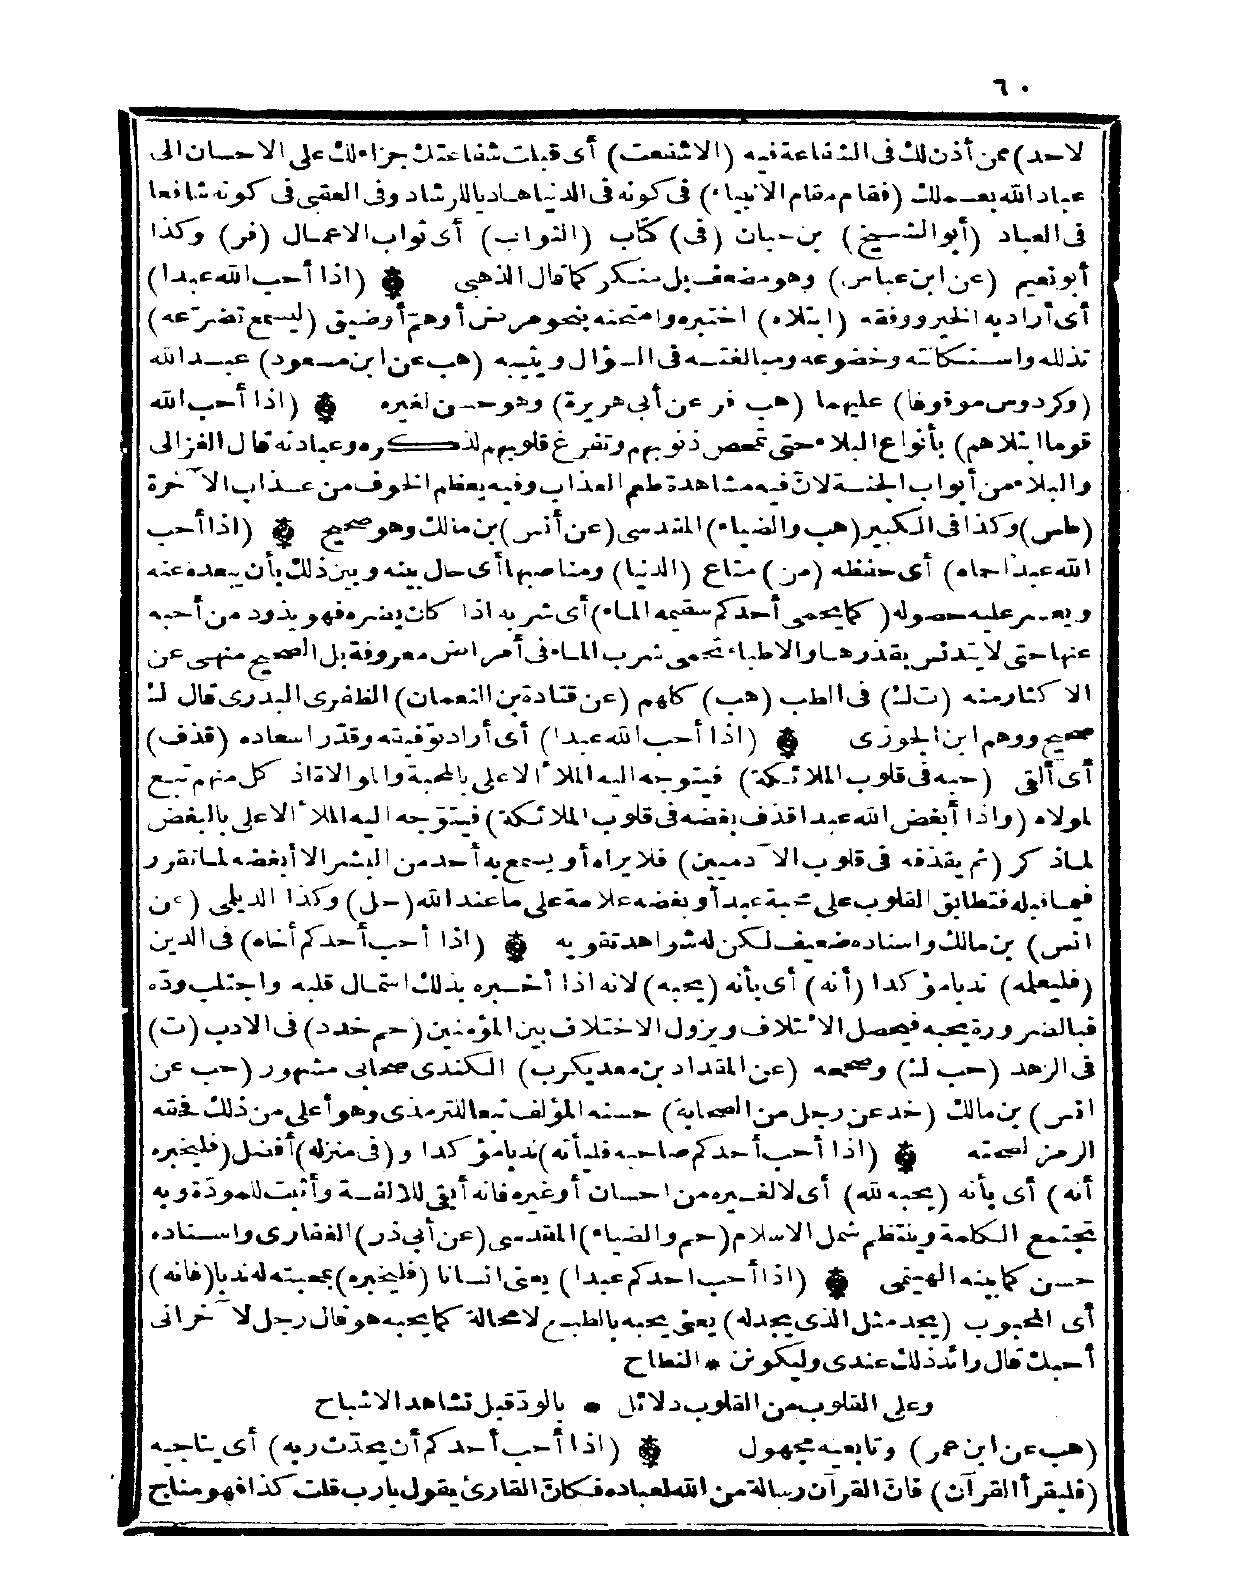 ٦٠
لاحد) ممن أذن لك فى الشفاعة فيه (الاشفعت) أى قبلت شفاعتك جزاء لك على الاحسان الى
عباد الله بعملك (فقام مقام الانبياء) فى كونه فى الدنيا هاديا للرشاد وفى العقبى فى كونه شافعا
فى العباد (أبو الشيخ) بن حبان (فى) كتاب (الثواب) أى ثواب الاعمال (فر) وكذا
أبو نعيم (عن ابن عباس) وهو مضعف بل منكر كما قال الذهبى (اذا أحب الله عبدا)
أى أراد به الخير ووفقه (ابتلاه) اختبره وامتحنه بنحو مرض أو هم أو ضيق (ليسمع تضرعه)
تذلله واستكانته وخضوعه ومبالغته فى السؤال ويثيبه (هب عن ابن مسعود) عبد الله
(وكردوس موقوفا) عليهما (هب فر عن أبى هريرة) وهو حسن لغيره (اذا أحب الله
قوما ابتلاهم) بأنواع البلاء حتى تمحص ذنوبهم وتفرغ قلوبهم لذكره وعبادته قال الغزالى
والبلاء من أبواب الجنة لان فيه مشاهدة طعم العذاب وفيه يعظم الخوف من عذاب الآخرة
(طس) وكذا فى الكبير (هب والضياء) المقدسى (عن أنس) بن مالك وهو صحيح (اذا أحب
الله عبدا حماه) أى حفظه (من) متاع (الدنيا) ومناصبها أى حال بينه وبين ذلك بأن يبعده عنه
ويعسر عليه حصوله (كما يحمى أحدكم سقيمه الماء) أى شربه اذا كان يضره فهو يذود من أحبه
عنها حتى لا يتدنس بقذرها والاطباء تحمى شرب الماء فى أمراض معروفة بل الصحيح منهى عن
الاكثار منه (ت ك) فى الطب (هب) كلهم (عن قتادة بن النعمان) الظفرى البدرى قال ك
صحيح ووهم ابن الجوزى (اذا أحب الله عبدا) أى أراد توفيقه وقدر اسعاده (قذف)
أى ألقى (حبه فى قلوب الملائكة) فيتوجه اليه الملأ الاعلى بالمحبة والموالاة اذ كل منهم تبع
لمولاه (واذا أبغض الله عبدا قذف بغضه فى قلوب الملائكة) فيتوجه اليه الملأ الاعلى بالبغض
لماذكر (ثم يقذفه فى قلوب الآدميين) فلا يراه أو يسمع به أحد من البشر الا أبغضه لما تقرر
فيما قبله فتطابق القلوب على محبة عبد أو بغضه علامة على ما عند الله (حل) وكذا الديلمى (عن
انس) بن مالك واسناده ضعيف لكن له شواهد تقويه (اذا أحب أحدكم أخاه) فى الدين
(فليعلمه) ندبا مؤكدا (أنه) أى بأنه (يحبه) لانه اذا أخبره بذلك استمال قلبه واجتلب وده
فبالضرورة يحبه فيحصل الائتلاف ويزول الاختلاف بين المؤمنين (حم خدد) فى الادب (ت)
فى الزهد (حب ك) وصححه (عن المقداد بن معد يكرب) الكندى صحابى مشهور (حب عن
انس) بن مالك (خد عن رجل من الصحابة) حسنه المؤلف تبعا للترمذى وهو أعلى من ذلك فحقه
الرمز لصحته (اذا أحب أحدكم صاحبه فليأته) ندبا مؤكدا و (فى منزله) أفضل (فليخبره
أنه) أى بأنه (يحبه لله) أى لا لغيره من احسان أو غيره فانه أبقى للالفة وأثبت للمودة وبه
تجتمع الكلمة وينتظم شمل الاسلام (حم والضياء) المقدسى (عن أبى ذر) الغفارى واسناده
حسن كما بينه الهيتمى (اذا أحب احدكم عبدا) يعنى انسانا (فليخبره) بمحبته له ندبا (فانه)
أى المحبوب (يجد مثل الذى يجد له) يعنى يحبه بالطبع لا محالة كما يحبه هو قال رجل لآخر انى
أحبك قال رائد ذلك عندى وليكونن * النطاح
وعلى القلوب من القلوب دلائل * بالود قبل تشاهد الاشباح
(هب عن ابن عمر) وتابعيه مجهول (اذا أحب أحدكم أن يحدث ربه) أى يناجيه
(فليقرأ القرآن) فان القرآن رسالة من الله لعباده فكان القارئ يقول يا رب قلت كذا فهو مناج